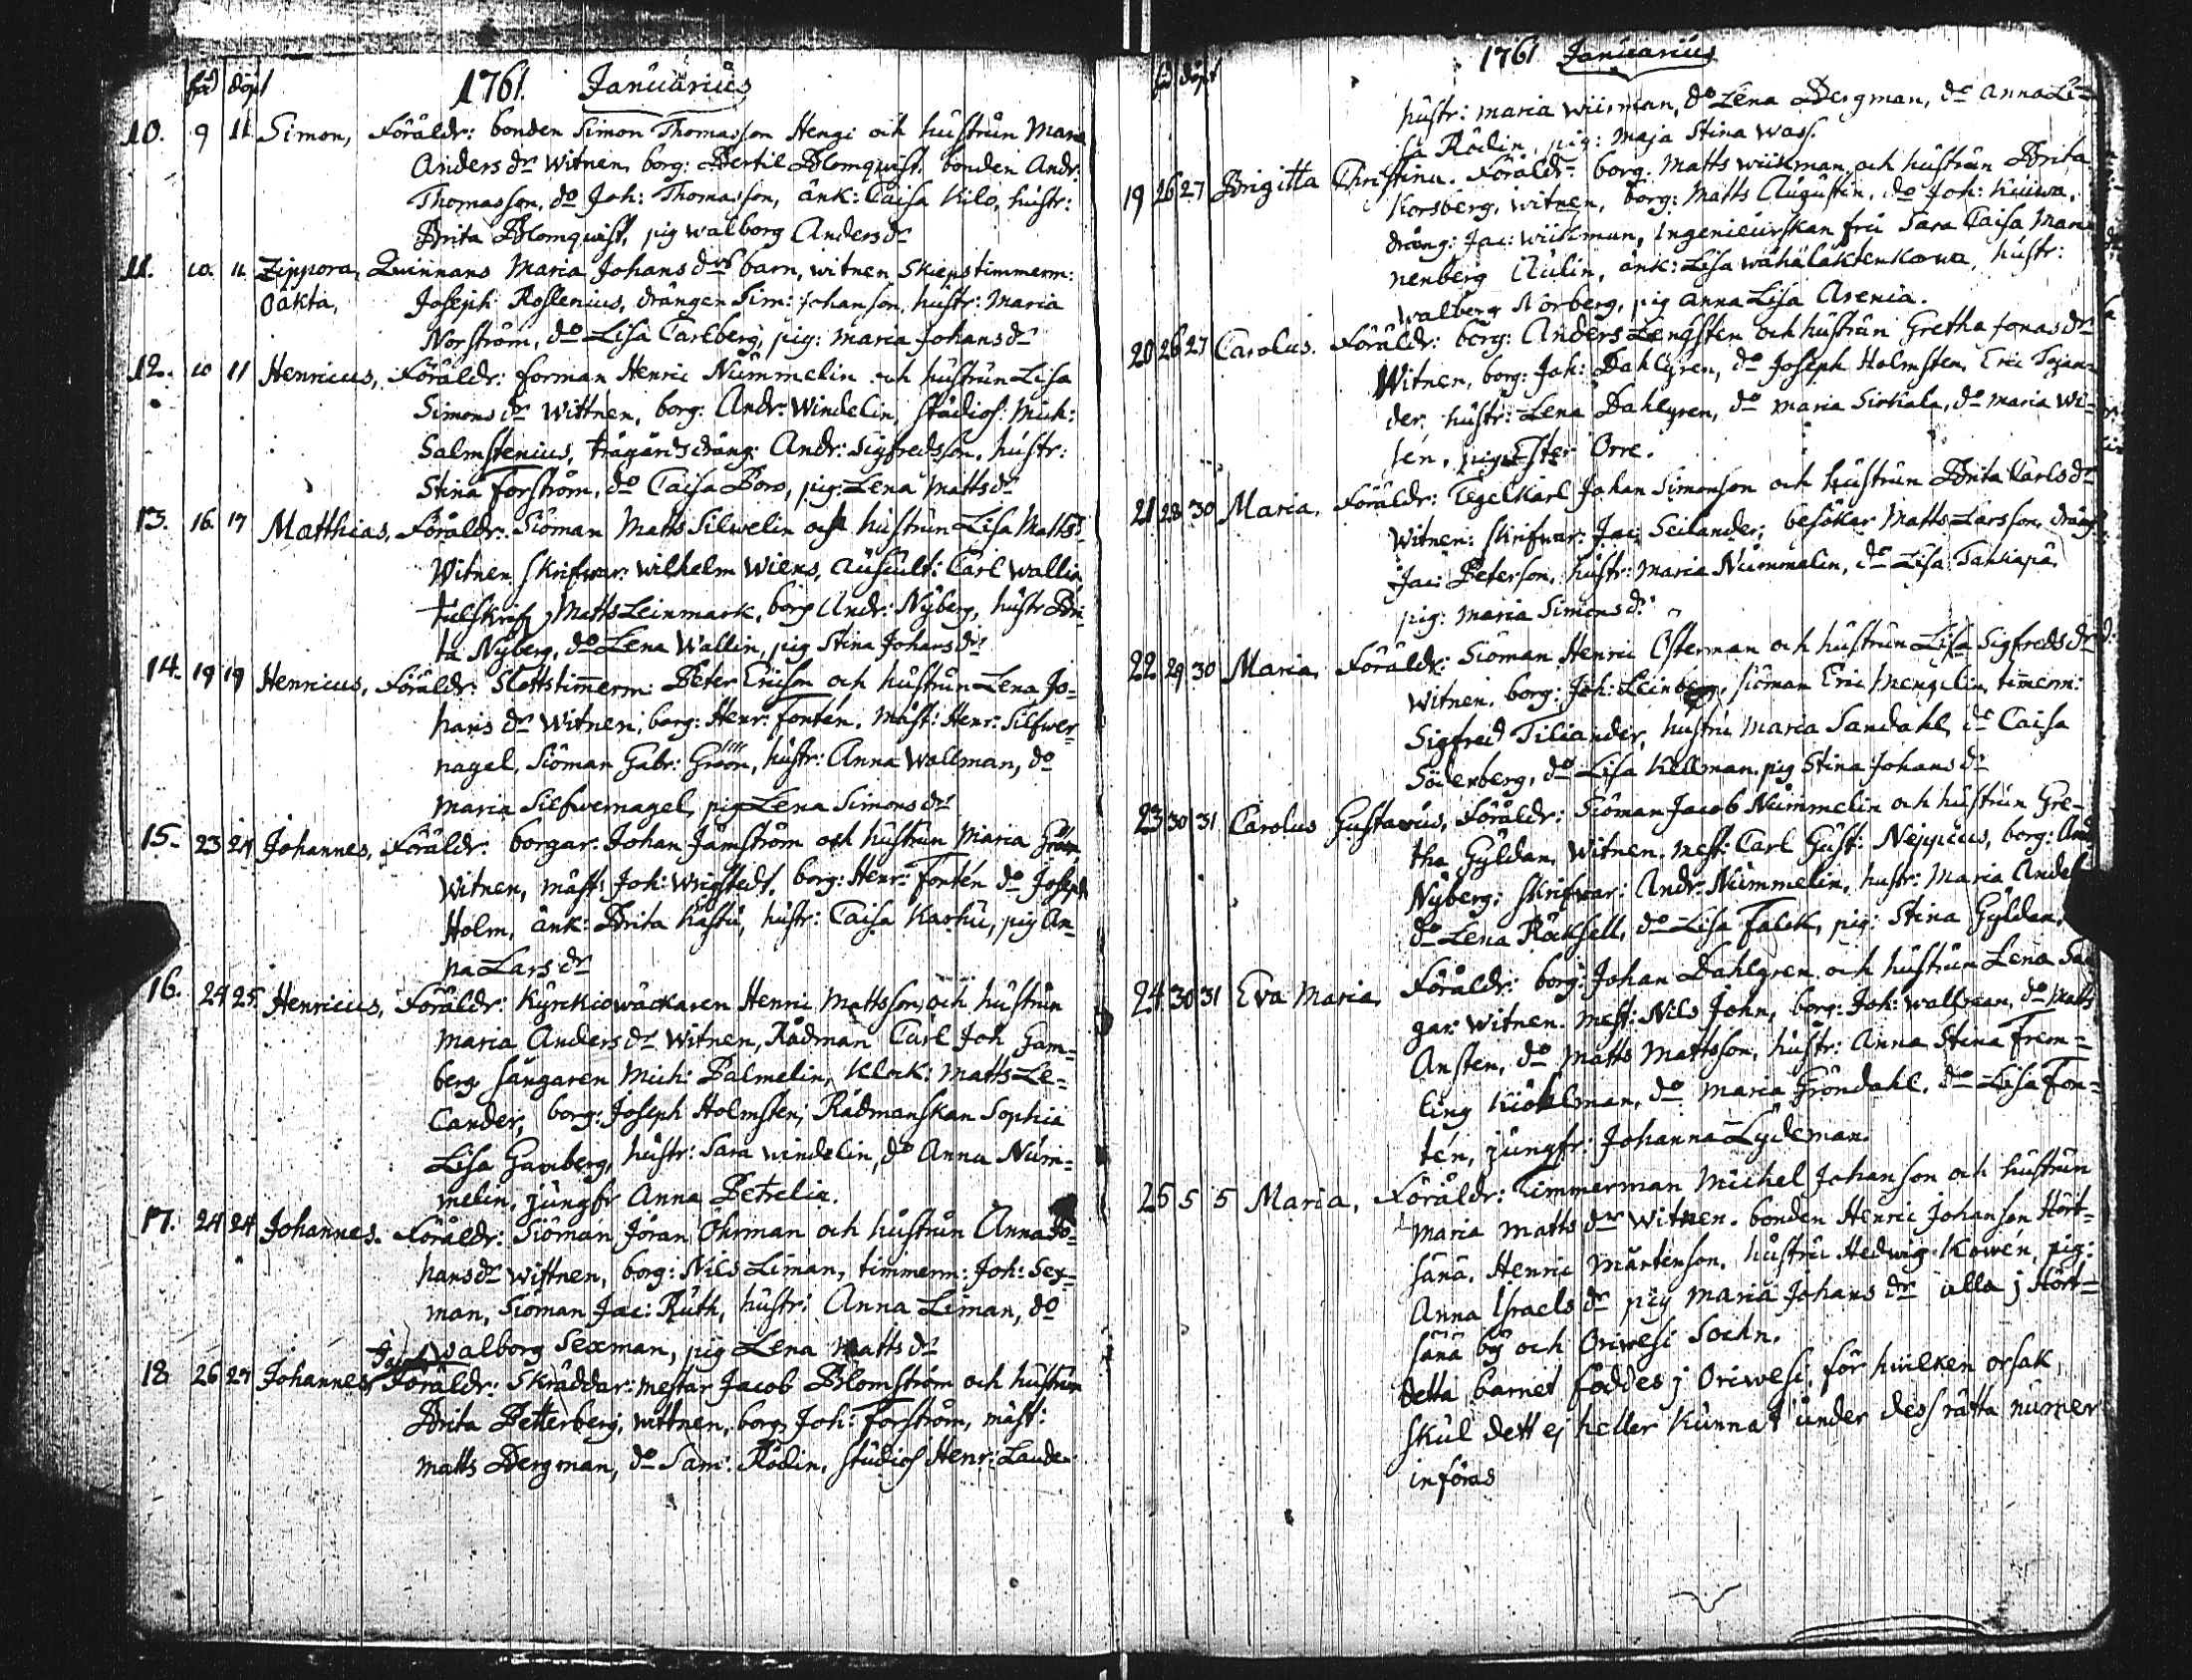 föd döpt 1761. Januarius
10. 9 11 Simon, Föräldr: bonden Simon Thomasson Hengi och hustrun Maria
Anders dr witnen, borg: Bertil Blomqwist, bonden Andr:
Thomasson, do Joh: Thomasson, änk: Caisa Kilo, hustr:
Brita Blomqwist, pig walborg Anders dr
11. 10. 11. Zippora, Quinnans Maria Johans drs barn, witnen Skieps timmerm:
oäkta, Joseph Roslenius, drängen Sim: Johanson, hustr: Maria
Norström, do Lisa Carlberg, pig: maria Johans dr
12. 10 11 Henricus, Föräldr: forman Henric Nummelin och hustrun Lisa
Simons dr wittnen, borg: Andr: Windelin, studios: Mich:
Salmstenius, trägårdsdräng: Andr: Sigfredsson, hustr:
Stina Forström, do Caisa Boro, pig: Lena Matts dr
13. 16. 17 Matthias, Föräldr: Siöman Matts Silwelin och hustrun Lisa Matts d:
Witnen skrifwar: Wilhelm Wiens, auscult: Carl Wallia,
tulskrif, Matts Leinmark, borg Andr: Nyberg, hustr Bri-
ta Nyberg, do Lena Wallin, pig Stina Johans dr
14. 19 19 Henricus, Föräldr: Slottstimmerm: Peter Ericson och hustrun Lena Jo=
hans dr witnen, borg: Henr: Fontén. mäst: Henr: Silfwer=
nagel, Siöman Gabr: Gröön, hustr: Anna Wallman, do
Maria Silfwernagel, pig Lena Simons dr
15. 23 24 Johannes, Föräldr: borgar: Johan Jämström och hustrun Maria
witnen, mäst: Joh: Wrigstedt, borg: Henr: Fontén do Joseph
Holm, änk: Brita Kastu, hustr: Caisa Karhu, pig An=
na Lars dr
16. 24 25. Henricus, Föräldr: Kyrckiowäckaren Henric Mattsson och hustrun
Maria Anders dr witnen, Rådman Carl Joh Gam=
berg sångaren Mich: Palmelin, Klock: Matts Le=
cander, borg: Joseph Holmsten, Rådmanskan Sophia
Lisa Gamberg, hustr: Sara windelin, do Anna Num=
melin, jungfr Anna Petrelia.
17. 24 24 Johannes. Föräldr: Siöman Jöran Öhrman och hustrun Anna Jo=
hans dr wittnen, borg: Nils Liman, timmerm: Joh: Sex=
man, Siöman Jac: Ruth, hustr: Anna Liman, do
Walborg Sexman, pig Lena Matts dr
18. 26 27 Johannes, Föräldr: Skräddar: mestar Jacob Blomström och hustrun
Brita Petterberg, wittnen, borg. Joh: Forström, mäst:
matts Bergman, do Sam: Rödin, studios Henr: Lander
föd döpt 1761 Januarius
hustr: maria wiisman, do Lena Bergman, do Anna Li=
sa Rödin, pig: Maja Stina wass.
19 26 27 Brigitta Christina. Föräldr: borg: Matts wiikman och hustrun Brita
Korsberg, witnen, borg: Matts Augustin, do Joh: Kuiwa,
dräng: Jac: wiikman, Ingenieurskan fru Sara Caisa Man=
nenberg Aulin, änk: Lisa wähäläktenkorwa, hustr:
walborg Norberg, pig Anna Lisa Arenia.
20 26 27 Carolus. Föräldr: borg: Anders Lengsten och hustrun Gretha Jonas dr
Witnen, borg: Joh: Dahlgren, do Joseph Holmsten, Eric Tojan=
der, hustr: Lena Dahlgren, do Maria Sirkala, do Maria Wi=
sén, pig Ester Orre.
21 28 30 Maria. Föräldr: Tegelkarl Johan Simonson och hustrun Brita Karls dr
witnen: Skrifwar: Jac: Seilander, besökar Matts Larsson, dräng
Jac: Peterson, hustr: Maria Nummelin, do Lisa Takkapä,
pig: maria Simons d:
22 29 30 Maria, Föräldr: Siöman Henric Österman och hustrun Lisa Sigfreds dr
witnen. borg: Joh: Leinberg, siöman Eric Mengelin, timerm:
Sigfred Tiliander, hustru Maria Sandahl, do Caisa
Söderberg, do Lisa Kellman, pig Stina Johans dr
23 30 31 Carolus Gustavus, Föräldr: Siöman Jacob Nummelin och hustrun Gre-
tha Gyldan, Witnen. mest: Carl Gust: Neppius, borg: And
Nyberg: skrifwar: Andr: Nummelin, hustr: Maria Andel
do Lena Röcksell, do Lisa Falck, pig: Stina Gyldan,
24 30 31 Eva Maria, Föräldr: borg: Johan Dahlgren och hustrun Lena Sa
gar: witnen. mest: Nils John, borg: Joh: Wallman, do Matts
Ansten, do Matts Mattsson, hustr: Anna Stina Frem=
ling Kiöhlman, do Maria Gröndahl, do Lisa Fon=
tén, jungfr: Johanna Lydeman.
25 5 5 Maria, Föräldr: Timmerman Michel Johanson och hustrun
Maria Matts dr witnen. bonden Henric Johanson Hört=
sänä, Henric Mårtenson, hustru Hedwig Kowén, pig:
Anna Israels dr pig Maria Johans dr alla j Hört=
sänä by och Oriwesi Sochn.
detta barnet foddes j Oriwesi, för hwilken orsak
skul dett ej heller kunnat under dess rätta numer
införas